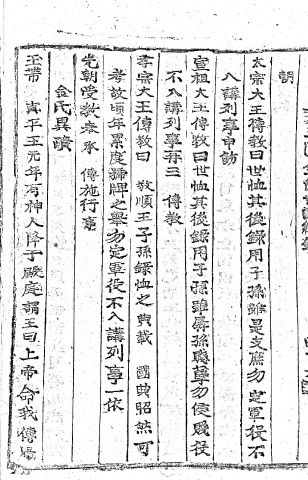 朝
太宗大王傳敎曰世恤其後錄用子孫雖是支庶勿定軍役不
入講列事申飭
宣祖大王傳敎曰世恤其後錄用子孫雖孱孫賤孽勿侵賤役
不入講列事再三 傳敎
孝宗大王傳敎曰 敬順王子孫錄恤之典載 國典昭然可
考故頃年累度 牌之擧勿定軍役不入講列事一依
先朝受敎奉承 傳施行
金氏異蹟
玉帶 眞平王元年有神人降于殿庭謂王曰上帝命我傳賜